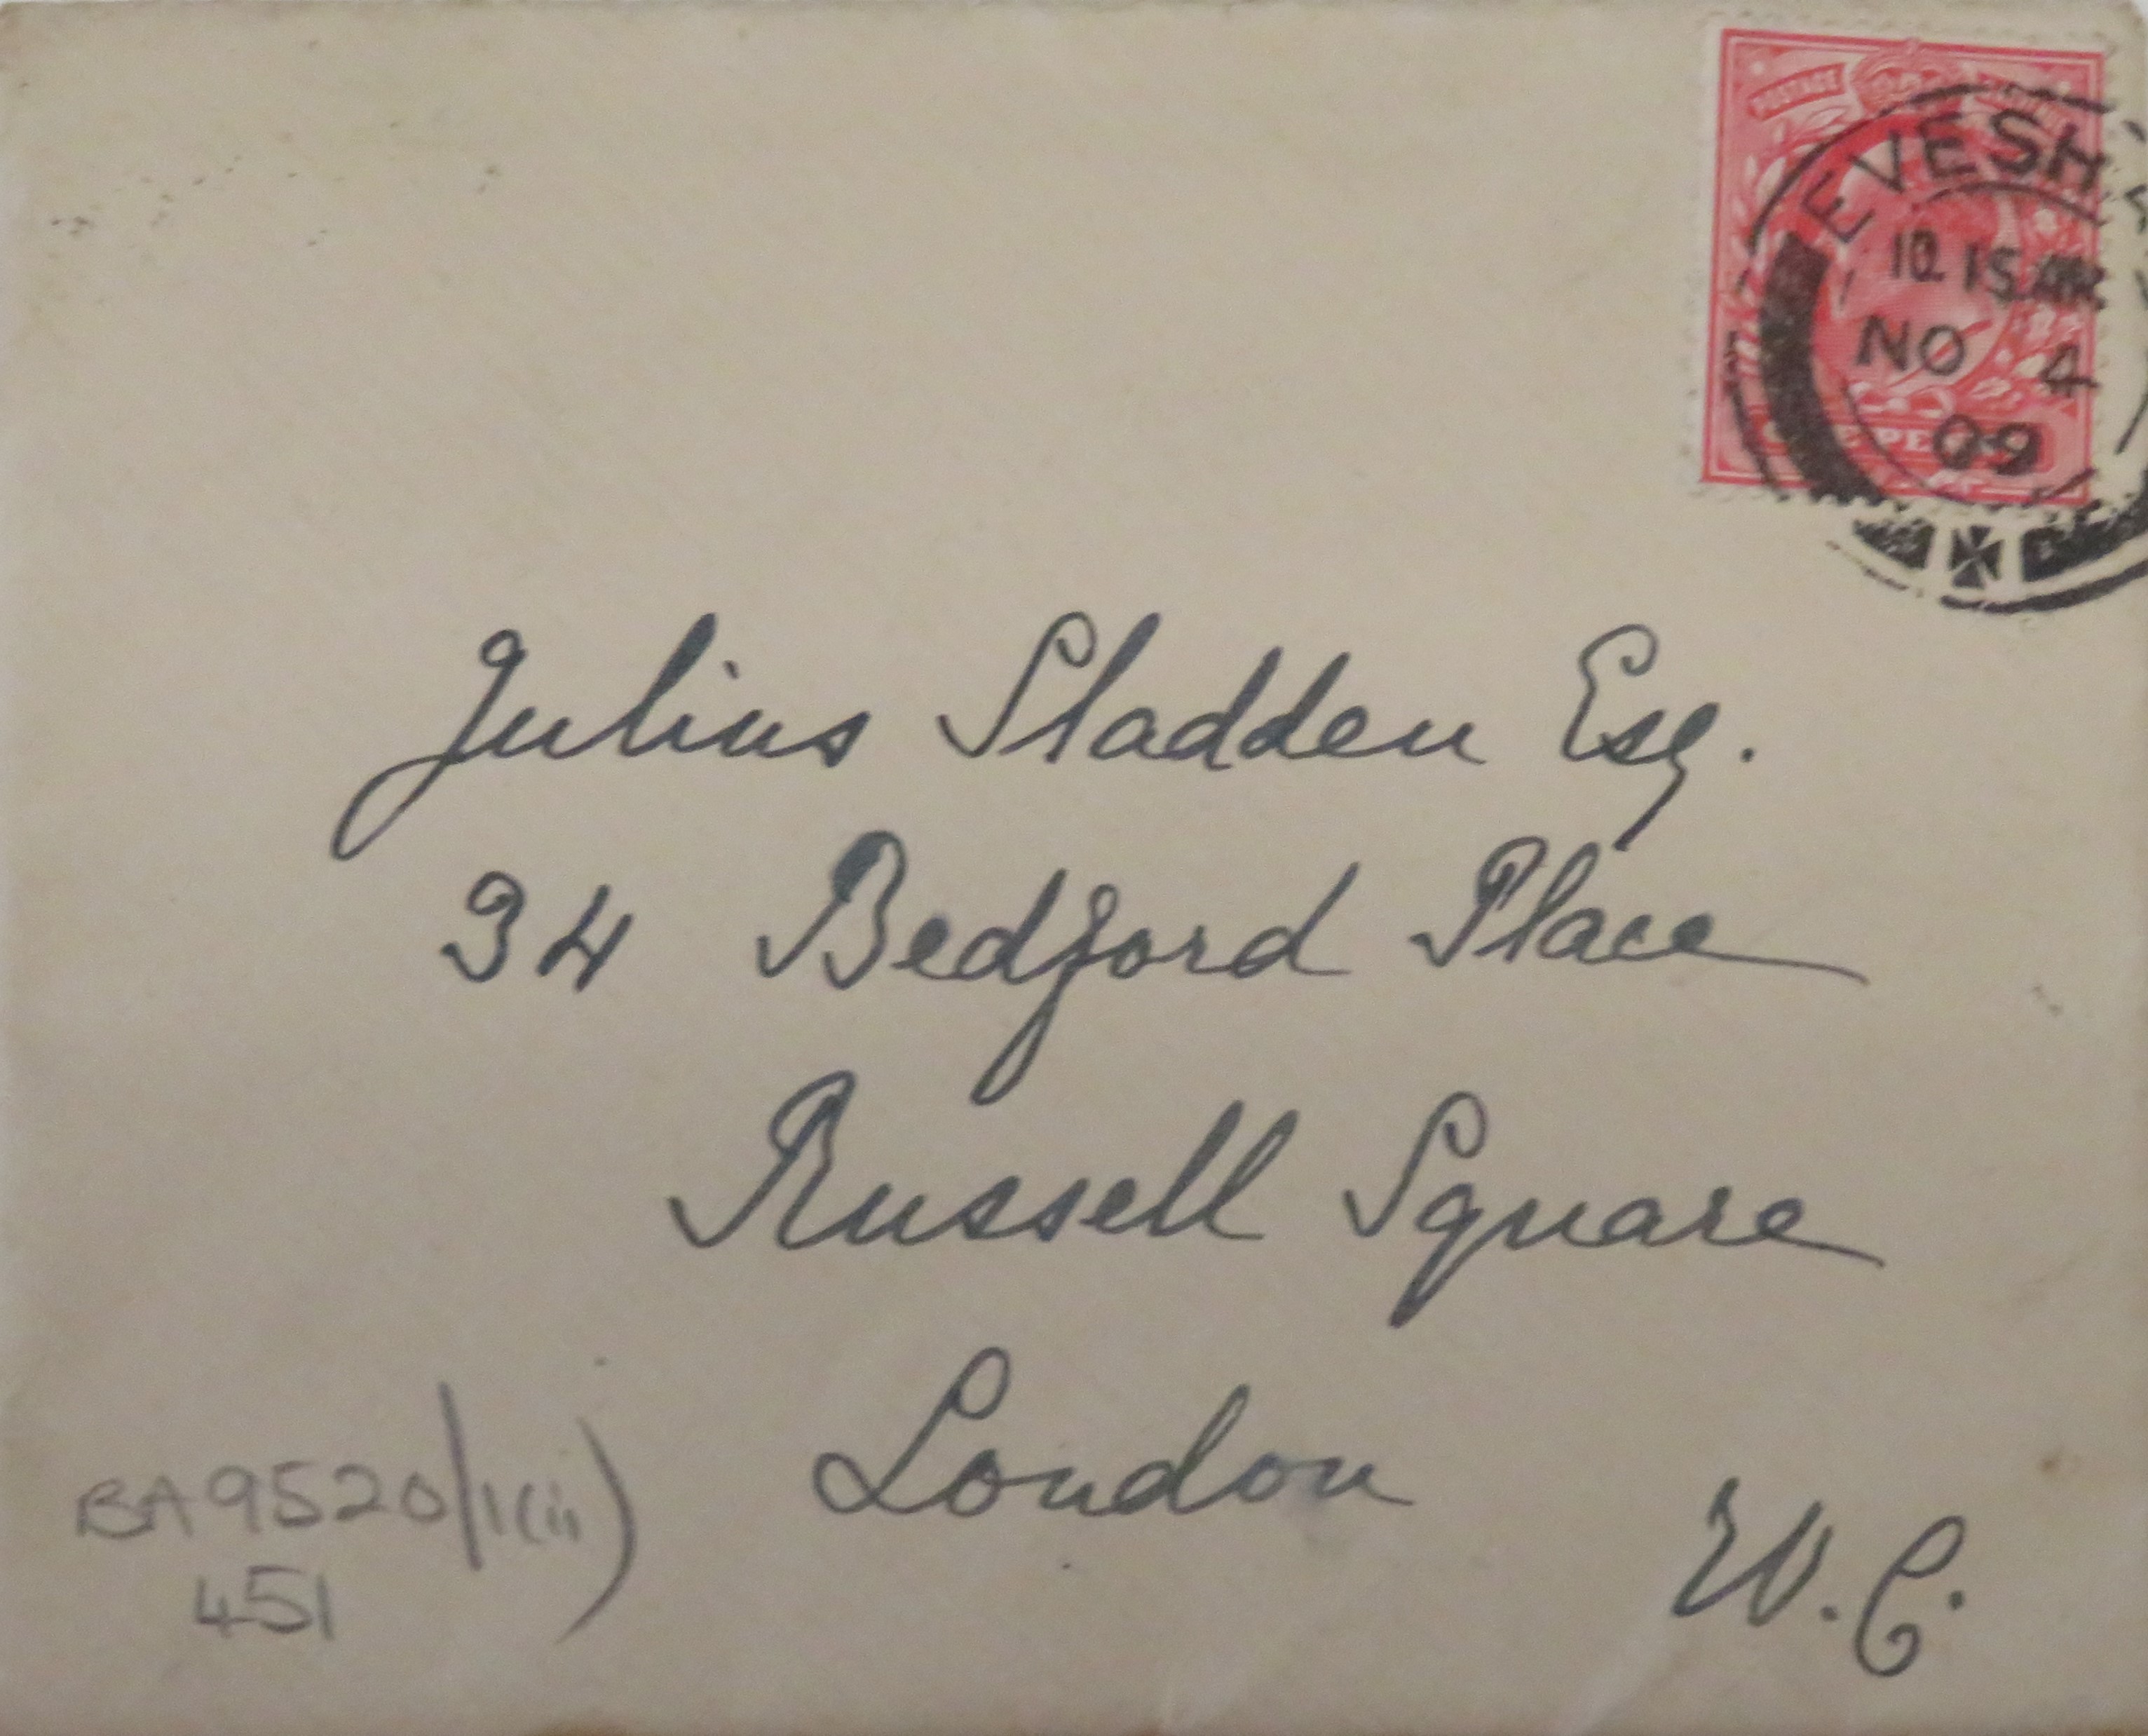 POSTAGE
EVESHA
10.15AM
NO 4
09
ONE PENNY
Julius Sladden Esq.
34 Bedford Place
Russell Square
London
W.C.
BA9520/1(ii)
451